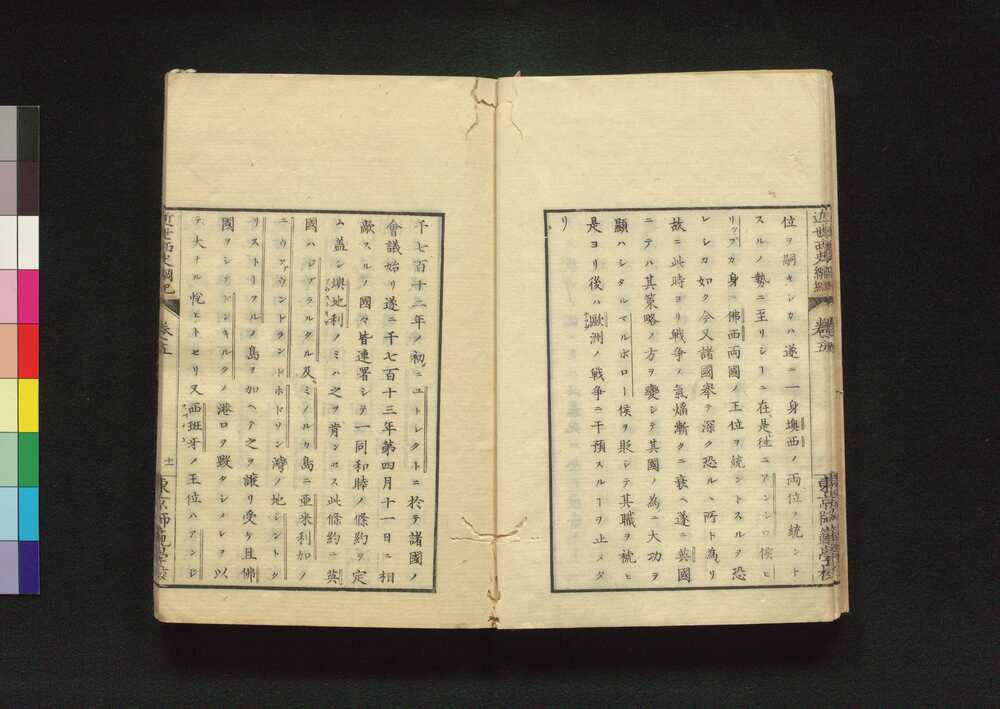 位ヲ嗣キシカハ遂ニ一身墺西ノ両位ヲ統シト
スルノ勢ニ至リシーニ在是往ニアンシロ侯ヒ
リップカ身ニ佛西両國ノ王位ヲ統ントスルヲ恐
レシカ如ク今又諸國奉テ深ク恐ルヽ所ト為リ
故ニ此時ヨリ戦争ノ氣焔漸クニ衰ヘ遂ニ英國
ニテハ其策略ノ方ヲ變シテ其國ノ為ニ大功ヲ
顯ハシタルマルボロー侯ヲ貶シテ其職ヲ褫ヒ
是ヨリ後ハ歐洲ノ戦争ニ干預スルヿヲ止メタ
リ
千七百十二年ノ初ニユトレクトニ於テ諸國ノ
會議始リ遂ニ千七百十三年第四月十一日ニ相
敵スルノ國々皆連署シテ一同和睦ノ條約ヲ定
ム蓋シ墺地利ノミハ之ヲ肯ンセス此條約ニ英
國ハジブラルタル及ミノルカ島ニ亜米利加ノ
ニウファウンドランドホドソン灣ノ地シントク
リストーフルノ島ヲ加ヘテ之ヲ譲リ受ケ且佛
國ヲシテドンキルクノ港口ヲ毀タシメシヲ以
テ大ナル悦ヒトセリ又西班牙ノ王位ハアンジ
近世西史綱紀
卷之五
十一
東京師範學校